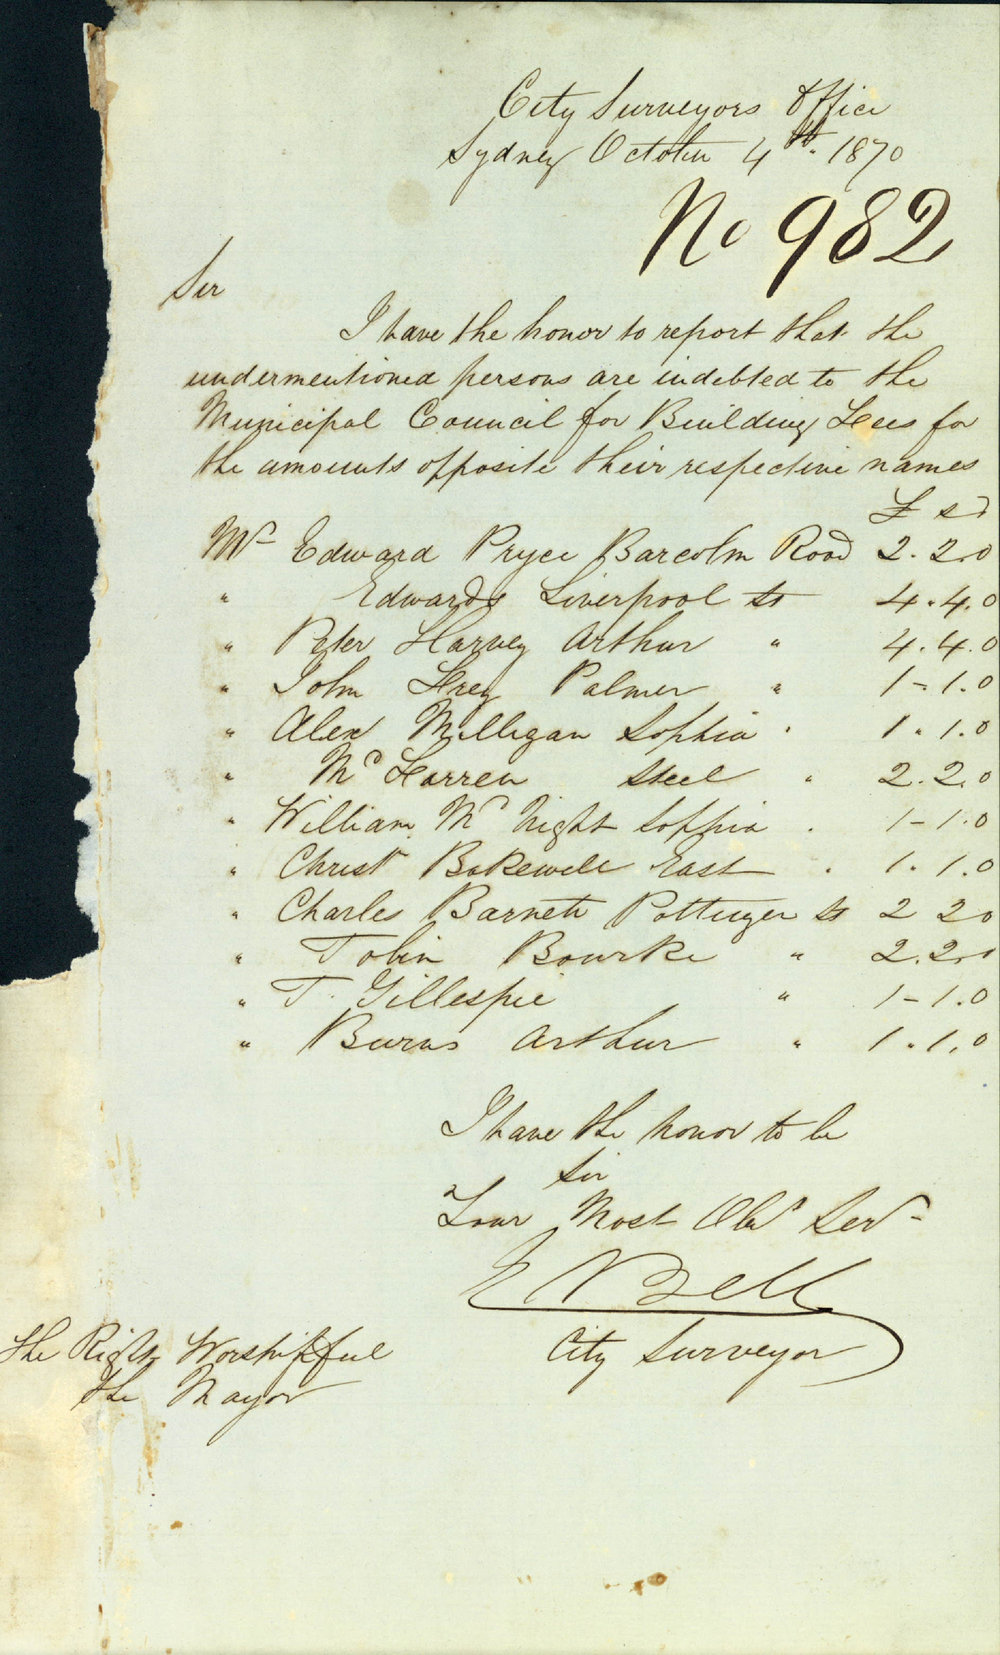 City Surveyors Office
Sydney October 4th. 1870
No 982
Sir
I have the honor to report that the
undermentioned persons are indebted to the
Municipal Council for Building Fees for
the amounts opposite their respective names
£ s d
Mr Edward Pryce Barcolm Road 2. 2.0
" Edwards Liverpool St 4.4.0
" Peter Harvey Arthur " 4.4.0
" John Frey Palmer " 1-1.0
" Alex Milligan Sophia " 1.1.0
" Mc Farren Steel " 2.2.0
" William Mc Night Sophia . 1-1.0
" Christ Bakewell East . 1.1.0
" Charles Barnett Pottinger St 2 2 0
" Tobin Bourke " 2.2.0
" T. Gillespie " 1-1.0
" Burns Arthur " 1.1.0
I have the honor to be
Sir
Your Most Obt Servt
E Bell
City Surveyor
The Right Worshipful
the Mayor